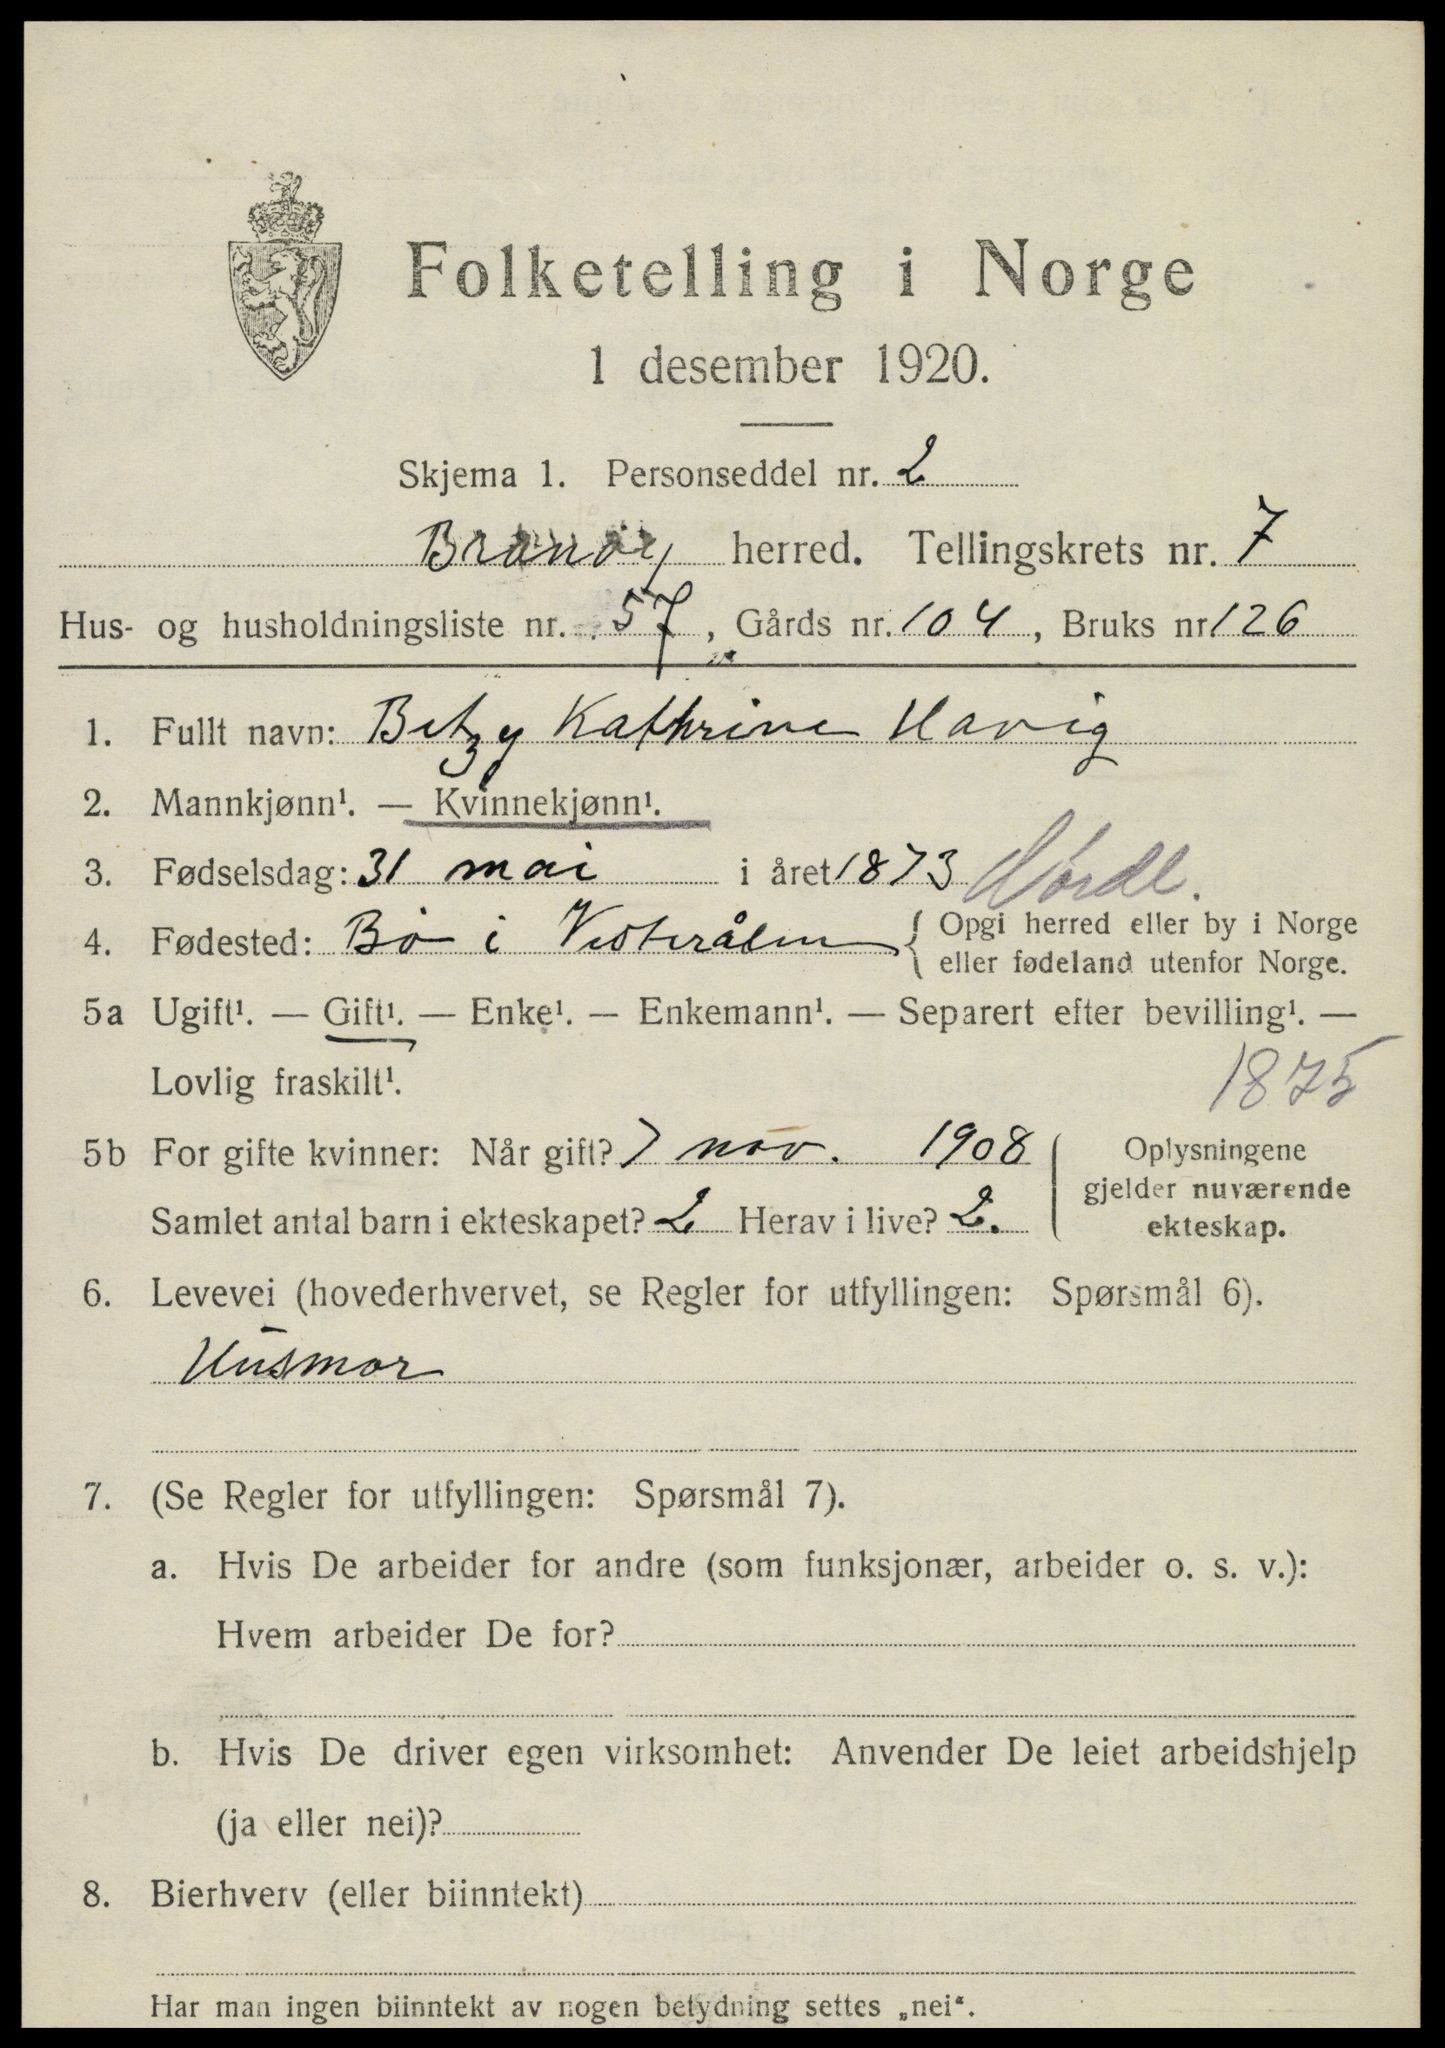 Folketelling i Norge
1 desember 1920.
Skjema 1. Personseddel nr. 2
Brønøy herred. Tellingskrets nr. 7
Hus- og husholdningsliste nr. 57, Gårds nr. 104, Bruks nr 126
1. Fullt navn: Betzy Kathrine Havig
2. Mannkjønn¹. — Kvinnekjønn¹.
3. Fødselsdag: 31 mai i året 1873 Nordl.
4. Fødested: Bø i Vesterålen { Opgi herred eller by i Norge
eller fødeland utenfor Norge.
5a Ugift¹. — Gift¹. — Enke¹. — Enkemann¹. — Separert efter bevilling¹. —
Lovlig fraskilt¹.
1875
5b For gifte kvinner: Når gift? 7 nov. 1908
Samlet antal barn i ekteskapet? 2 Herav i live? 2.
Oplysningene
gjelder nuværende
ekteskap.
6. Levevei (hovederhvervet, se Regler for utfyllingen: Spørsmål 6).
Husmor
7. (Se Regler for utfyllingen: Spørsmål 7).
a. Hvis De arbeider for andre (som funksjonær, arbeider o. s. v.):
Hvem arbeider De for?
b. Hvis De driver egen virksomhet: Anvender De leiet arbeidshjelp
(ja eller nei)?
8. Bierhverv (eller biinntekt)
Har man ingen biinntekt av nogen betydning settes „nei“.